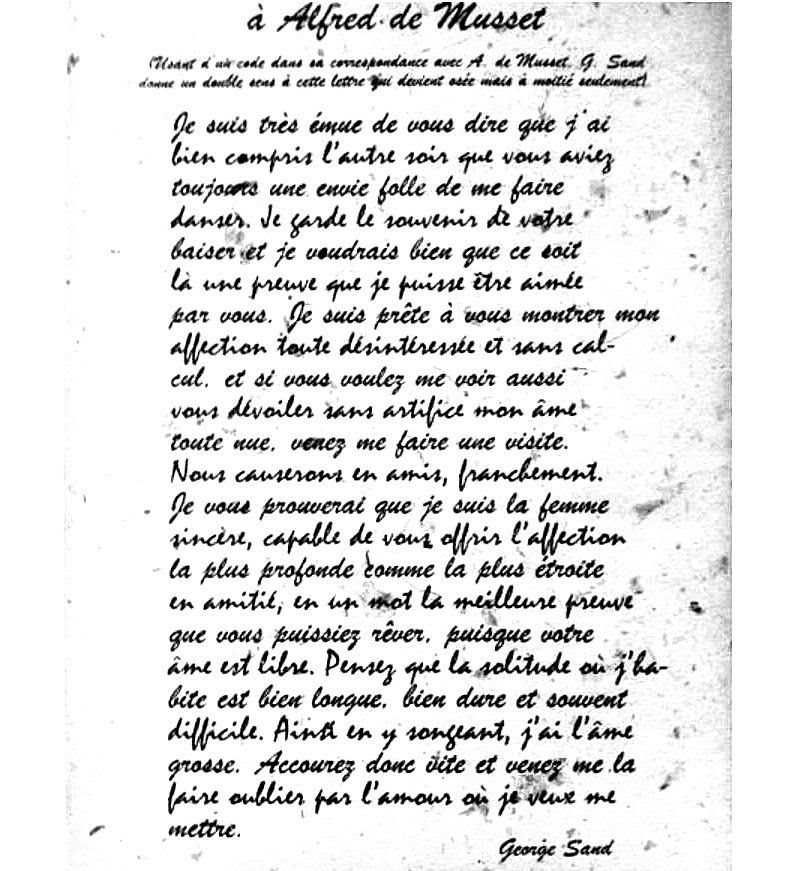 à Alfred de Musset
(Usant d'un code dans sa correspondance avec A. de Musset, G. Sand
donne un double sens à cette lettre qui devient osée mais à moitié seulement)
Je suis très émue de vous dire que j'ai
bien compris l'autre soir que vous aviez
toujours une envie folle de me faire
danser. Je garde le souvenir de votre
baiser et je voudrais bien que ce soit
là une preuve que je puisse être aimée
par vous. Je suis prête à vous montrer mon
affection toute désintéressée et sans cal-
cul, et si vous voulez me voir aussi
vous dévoiler sans artifice mon âme
toute nue, venez me faire une visite.
Nous causerons en amis, franchement.
Je vous prouverai que je suis la femme
sincère, capable de vous offrir l'affection
la plus profonde comme la plus étroite
en amitié, en un mot la meilleure preuve
que vous puissiez rêver, puisque votre
âme est libre. Pensez que la solitude où j'ha-
bite est bien longue, bien dure et souvent
difficile. Ainsi en y songeant, j'ai l'âme
grosse. Accourez donc vite et venez me la
faire oublier par l'amour où je veux me
mettre.
George Sand